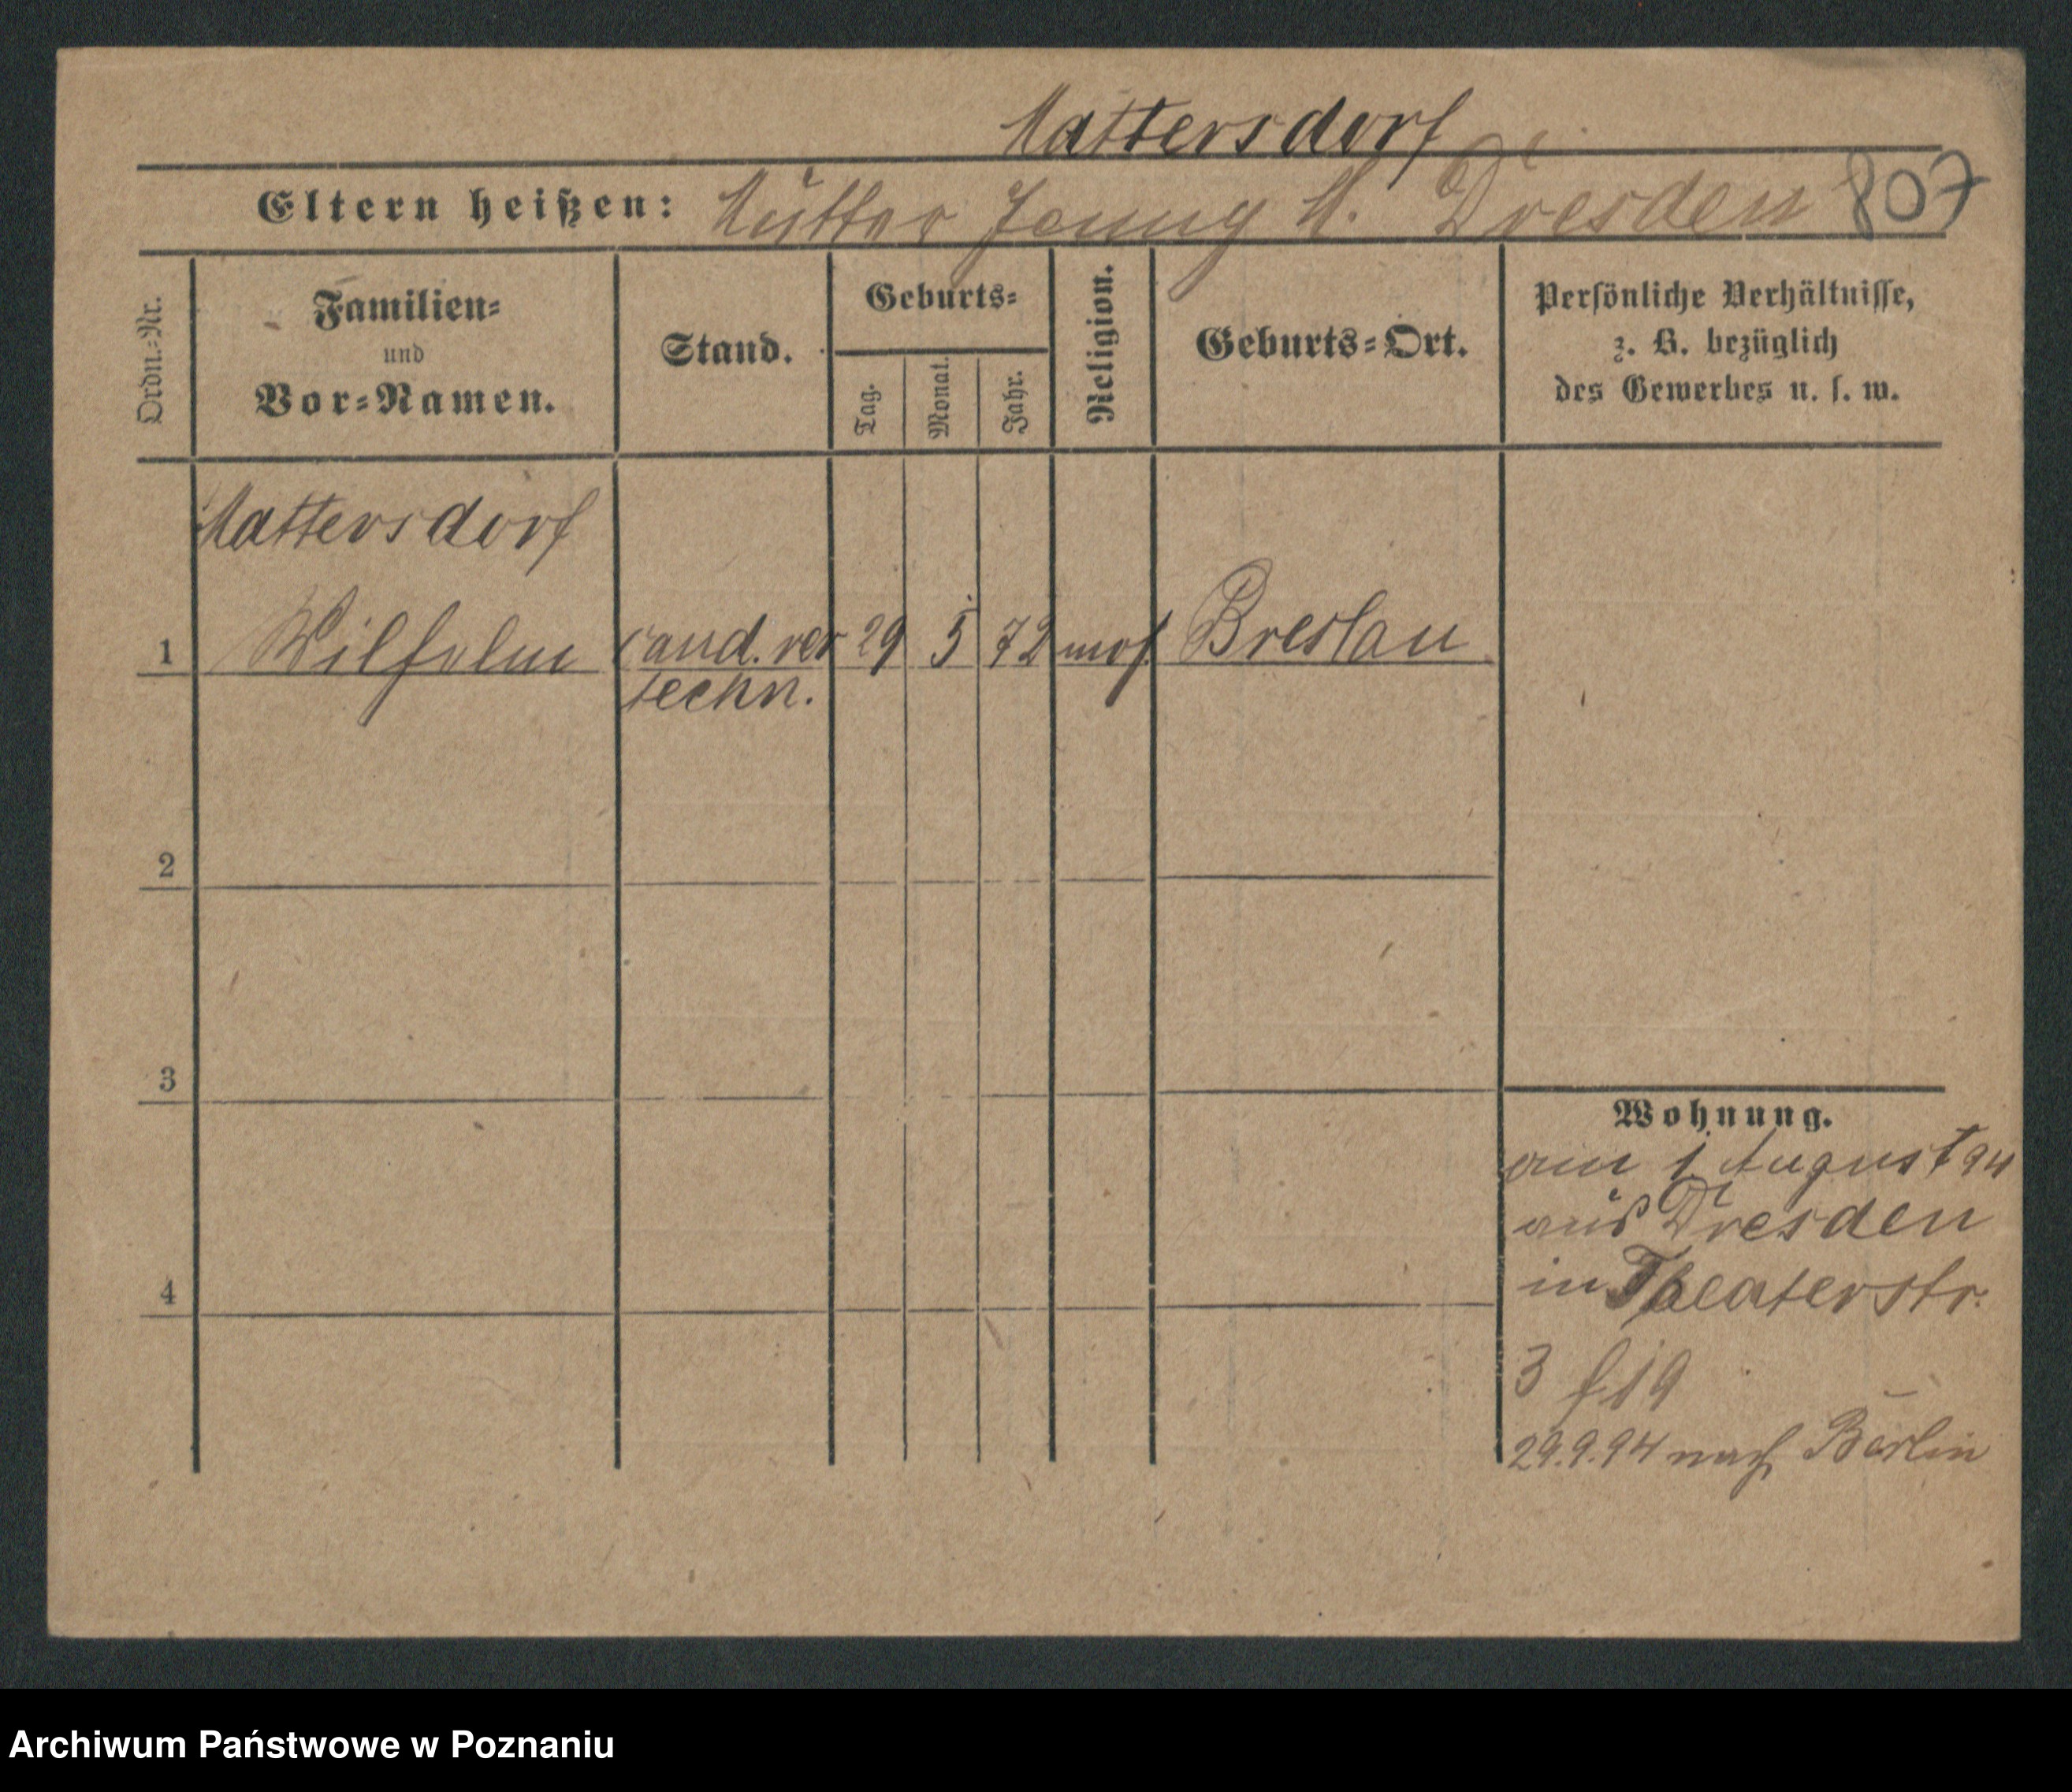 Mattersdorf
Eltern heißen: Mutter Jenny M. Dresden 807
Ordn.-Nr.
Familien-
und
Vor-Namen.
Stand.
Geburts-
Tag.
Monat.
Jahr.
Religion.
Geburts-Ort.
Persönliche Verhältnisse,
z. B. bezüglich
des Gewerbes u. s. w.
Mattersdorf
1 Wilhelm cand. rer 29 5 72 mos. Breslau
techn.
2
3
4
Wohnung.
am 1 August 94
aus Dresden
in Theaterstr.
3 19
29.9.94 nach Berlin
Archiwum Państwowe w Poznaniu